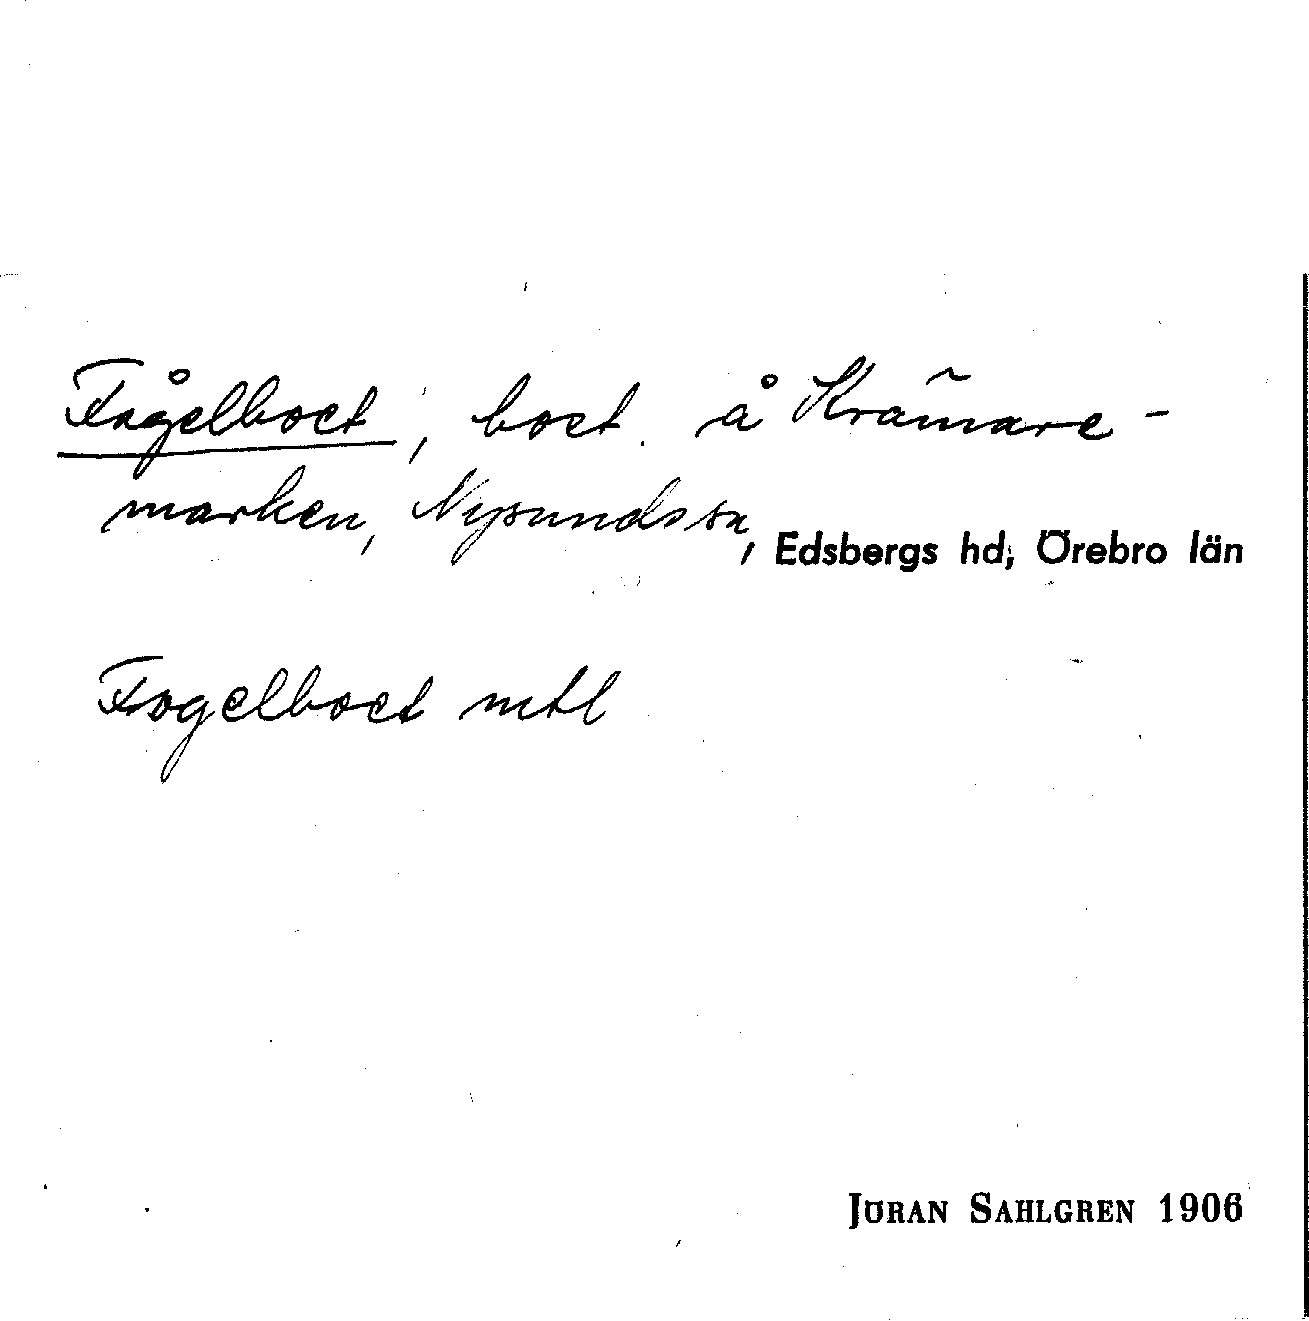 Fågelboet, bost. å Krämare-
marken, Nysunds sn, Edsbergs hd, Örebro län
Fogelboet mtl
JÖRAN SAHLGREN 1906